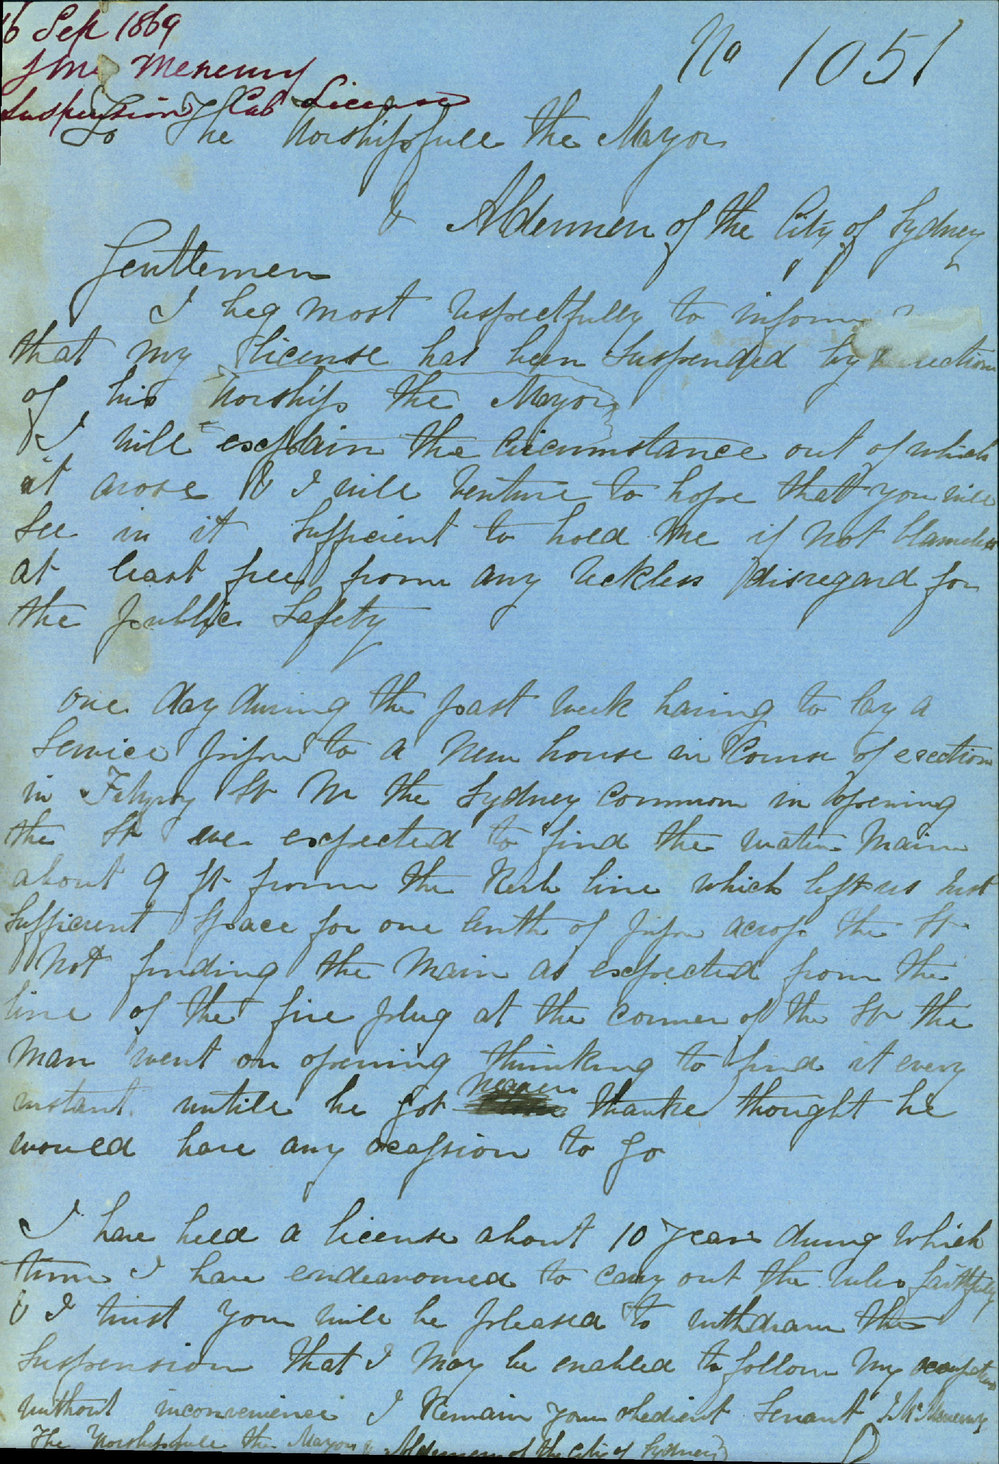 16 Sep 1869
No 1051
Jno McNemy
Suspension Cab License
To The Worshipfull the Mayor
& Aldermen of the City of Sydney
Gentlemen
I beg most respectfully to inform
that my license has been suspended by direction
of his Worship the Mayor
I will explain the circumstance out of which
it arose & I will venture to hope that you will
see in it sufficient to hold me if not blameless
at least free from any reckless disregard for
the public safety
one day during the past week having to lay a
service pipe to a new house in course of erection
in Fitzroy St Nr the Sydney common in opening
the St we expected to find the water main
about 9 ft from the Kerb line which left us Just
sufficient space for one lenth of pipe across the St
Not finding the main as expected from the
line of the fire plug at the corner of the St the
man went on opening thinking to find it every
instant untile he got nearer thanke thought he
would have any ocassion to go
I have held a license about 10 years during which
time I have endeavoured to carry out the rules faithfuly
& I trust you will be pleased to withdraw the
suspension that I may be enabled to follow my
without inconvenience I Remain your obedient Servant
The Worshipfull the Mayor & Aldermen of the City of Sydney